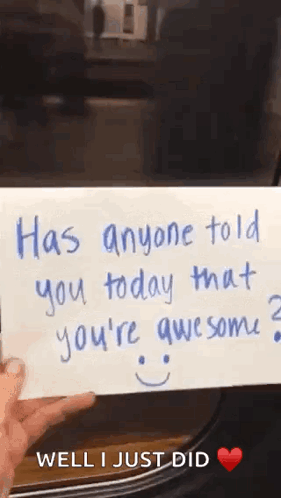 Has anyone told
you today that
you're awesome?
WELL I JUST DID ♥